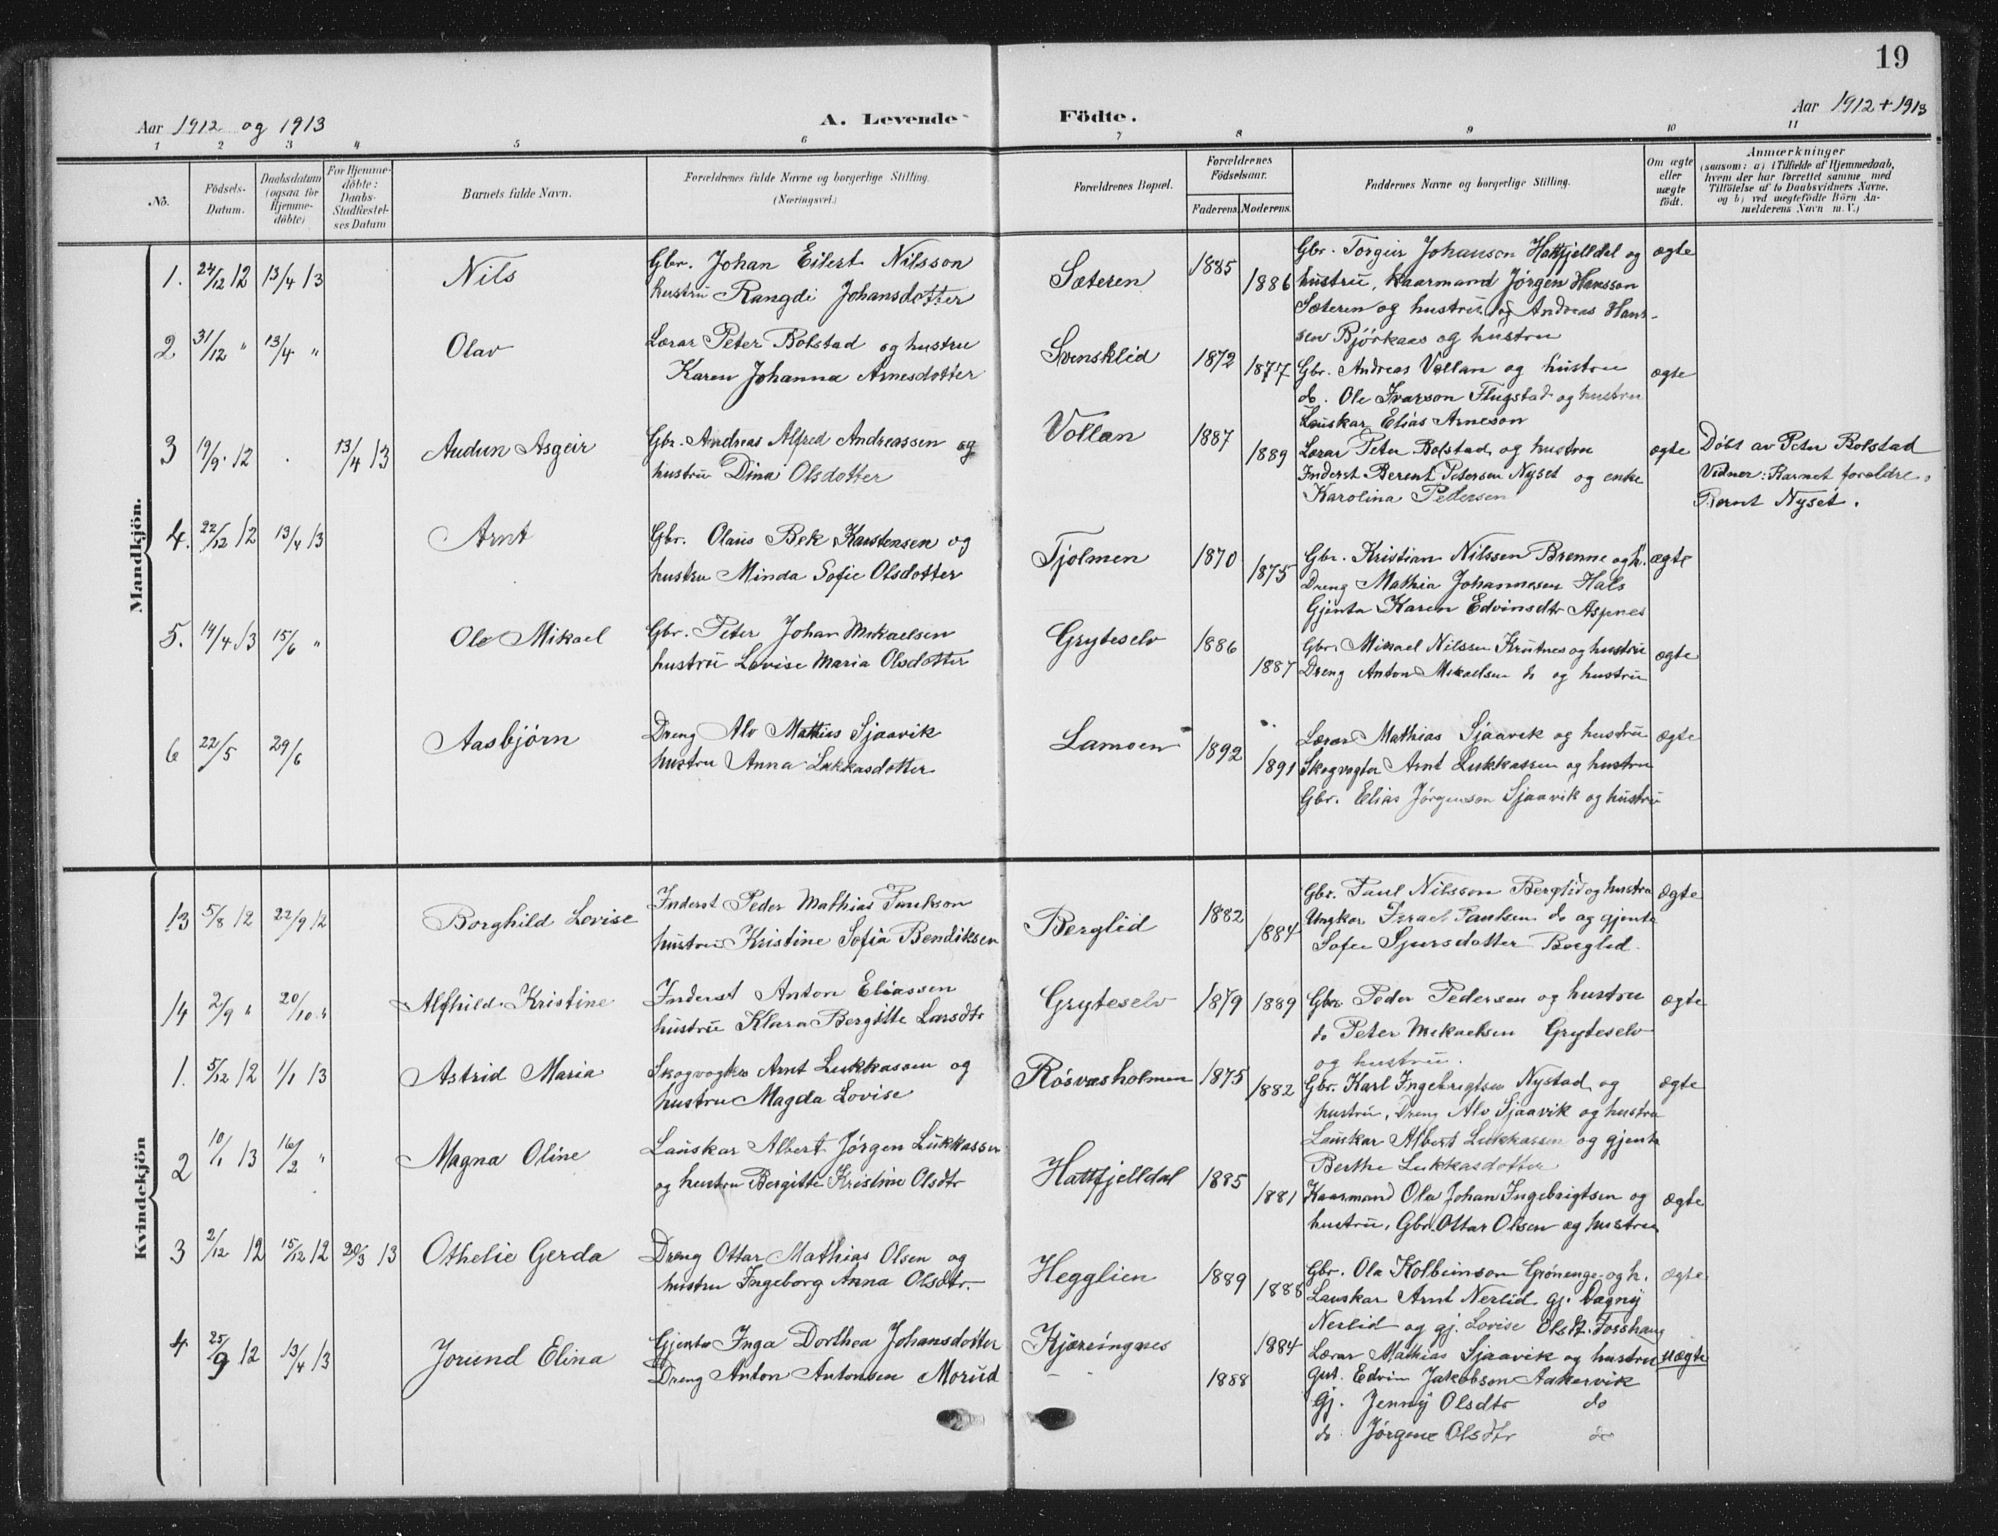 19
Aar 1912 og 1913
A. Levende
Födte.
Aar 1912 + 1913
1 2 3 4 5 6 7 8 9 10 11
No.
Födsels-
Datum.
Daabsdatum
(ogsaa for
Hjemme-
döbte)
For Hjemme-
döbte:
Daabs-
Stadfæstel-
ses Datum
Barnets fulde Navn.
Forældrenes fulde Navne og borgerlige Stilling.
(Næringsvei.)
Forældrenes Bopæl.
Forældrenes
Födselsaar.
Faderens. Moderens.
Faddernes Navne og borgerlige Stilling.
Om ægte
eller
uægte
födt.
Anmærkninger
(saasom: a) i Tilfælde af Hjemmedaab,
hvem der har forrettet samme med
Tilföielse af to Daabsvidners Navne,
og b) ved uægtefödte Börn An-
melderens Navn m. V.)
Mandkjön.
1. 24/12 12 13/4 13 Nils
Gbr. Johan Eilert Nilsson
hustru Rangdi Johansdotter
Sæteren 1885 1886
Gbr. Torgeir Johanson Hattfjelldal og
hustru, Kaarmand Jørgen Hansson
Sæteren og hustru og Andreas Hans-
sen Bjørkaas og hustru
ægte
2 31/12 " 13/4 " Olav
Lærar Peter Bolstad og hustru
Karen Johanna Arnesdotter
Svensklid 1872 1877
Gbr. Andreas Vollan og hustru
do. Ole Ivarson Flugstad og hustru
Lauskar Elias Arneson
ægte
3 19/9 12 . 13/4 13 Audun Asgeir
Gbr. Andreas Alfred Andreassen og
hustru Dina Olsdotter
Vollan 1887 1889
Lærar Peter Bolstad og hustru
Inderst Berent Petersen Nyset og enke
Karolina Pedersen
ægte
Døbt av Peter Bolstad
Vidner: Barnet forældre,
Bernt Nyset.
4. 22/12 12 13/4 13 Arnt
Gbr. Olaus Bek Karstensen og
hustru Minda Sofie Olsdotter
Tjolmen 1870 1875
Gbr. Kristian Nilssen Brenne og h.
Dreng Mathia Johannesen Hals
Gjenta Karen Edvinsdtr Aspnes
ægte
5. 14/4 13 15/6 " Ole Mikael
Gbr. Peter Johan Mikaelsen
hustru Lovise Maria Olsdotter
Gryteselv 1886 1887
Gbr. Mikael Nilssen Krutnes og hustru
Dreng Anton Mikaelsen do og hustru
ægte
6 22/5 29/6 Aasbjørn
Dreng Alv Mathias Sjaavik
hustru Anna Lukkasdotter
Lamoen 1892 1891
Lærar Mathias Sjaavik og hustru
Skogvogter Arnt Lukkassen og hustru
Gbr. Elias Jørgenson Sjaavik og hustru
ægte
Kvindekjön
13 5/8 12 22/9 12 Borghild Lovise
Inderst Peder Mathias Paulson
hustru Kristine Sofia Bendiksen
Berglid 1882 1884
Gbr. Paul Nilsson Berglid og hustru
Ungkar Israel Paulsen do og gjenta
Sofie Sjursdotter Berglid.
ægte
14 2/9 " 20/10 " Alfhild Kristine
Inderst Anton Eliassen
hustru Klara Bergitte Larsdtr
Gryteselv 1879 1889
Gbr. Peder Pedersen og hustru
do Peter Mikaelsen Gryteselv
og hustru.
ægte
1. 5/12 12 1/1 13 Astrid Maria
Skogvogter Arnt Lukkassen og
hustru Magda Lovise
Rösvasholmen 1875 1882
Gbr. Karl Ingebrigtsen Nystad og
hustru, Dreng Alv Sjaavik og hustru
Lauskar Albert Lukkassen og gjenta
Berthe Lukkasdotter
ægte
2 10/1 13 16/2 " Magna Oline
Lauskar Albert Jørgen Lukkassen
og hustru Bergitte Kristine Olsdtr
Hattfjelldal 1885 1881
Kaarmand Ole Johan Ingebrigtsen og
hustru, Gbr. Ottar Olsen og hustru
ægte
3 2/12 12 15/12 12 20/3 13 Othelie Gerda
Dreng Ottar Mathias Olsen og
hustru Ingeborg Anna Olsdtr.
Hegglien 1889 1888
Gbr. Ola Kolbeinson Grönenge og h.
Lauskar Arnt Nerlid gj. Dagny
Nerlid og gj. Lovise Olsdt. Fosshaug
ægte
4 25/9 12 13/4 13 Jorund Elina
Gjenta Inga Dorthea Johansdotter
Dreng Anton Antonsen Morud
Kjæringnes 1884
1888
Lærar Mathias Sjaavik og hustru
Gut. Edvin Jakobson Aakervik
Gj. Jenny Olsdtr do
do Jørgene Olsdtr do
uægte